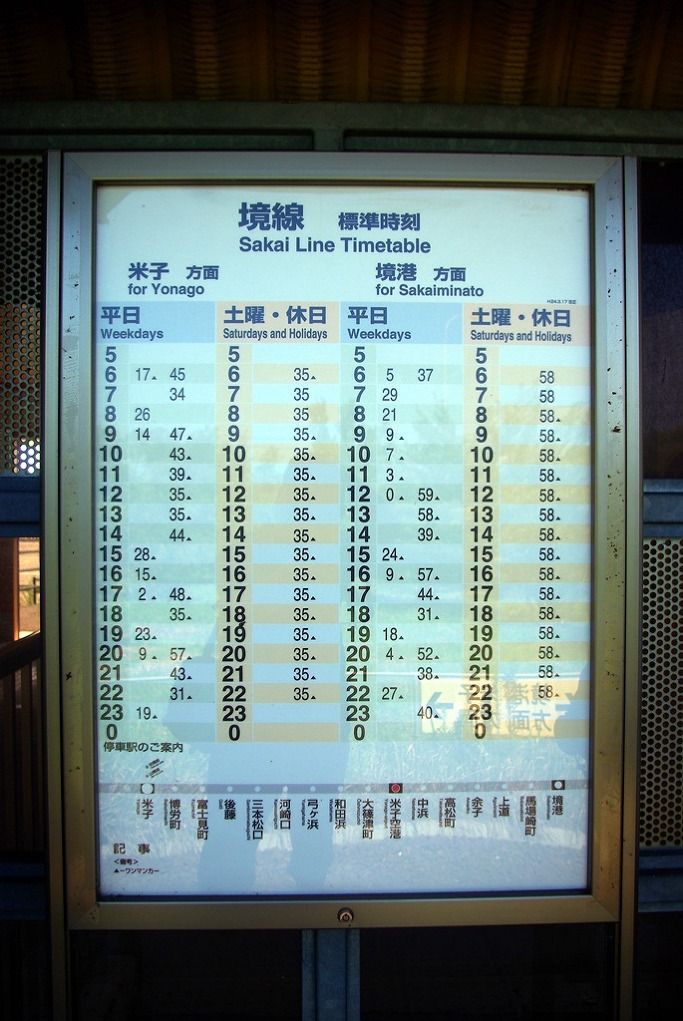 境線 標準時刻
Sakai Line Timetable
米子 方面 境港 方面
for Yonago for Sakaiminato
平日 土曜・休日 平日 土曜・休日
Weekdays Saturdays and Holidays Weekdays Saturdays and Holidays
5 5 5 5
6 17▲ 45 6 35▲ 6 5 37 6 58
7 34 7 35 7 29 7 58
8 26 8 35 8 21 8 58▲
9 14 47▲ 9 35▲ 9 9▲ 9 58▲
10 43▲ 10 35▲ 10 7▲ 10 58▲
11 39▲ 11 35▲ 11 3▲ 11 58▲
12 35▲ 12 35▲ 12 0▲ 59▲ 12 58▲
13 35▲ 13 35▲ 13 58▲ 13 58▲
14 44▲ 14 35▲ 14 39▲ 14 58▲
15 28▲ 15 35▲ 15 24▲ 15 58▲
16 15▲ 16 35▲ 16 9▲ 57▲ 16 58▲
17 2▲ 48▲ 17 35▲ 17 44▲ 17 58▲
18 35▲ 18 35▲ 18 31▲ 18 58▲
19 23▲ 19 35▲ 19 18▲ 19 58▲
20 9▲ 57▲ 20 35▲ 20 4▲ 52▲ 20 58▲
21 43▲ 21 35▲ 21 38▲ 21 58▲
22 31▲ 22 35▲ 22 27▲ 22 58▲
23 19▲ 23 23 40▲ 23
0 0 0 0
停車駅のご案内
米子 博労町 富士見町 後藤 三本松口 河崎口 弓ヶ浜 和田浜 大篠津町 米子空港 中浜 高松町 余子 上道 馬場崎町 境港
記事
<備考>
▲=ワンマンカー